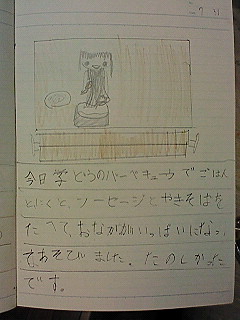 今日学どうのバーベキュウでごはん
とにくと、ソーセージとやきそばを
たべて、おなかがいっぱいになって、
であそびました。たのしかった
です。